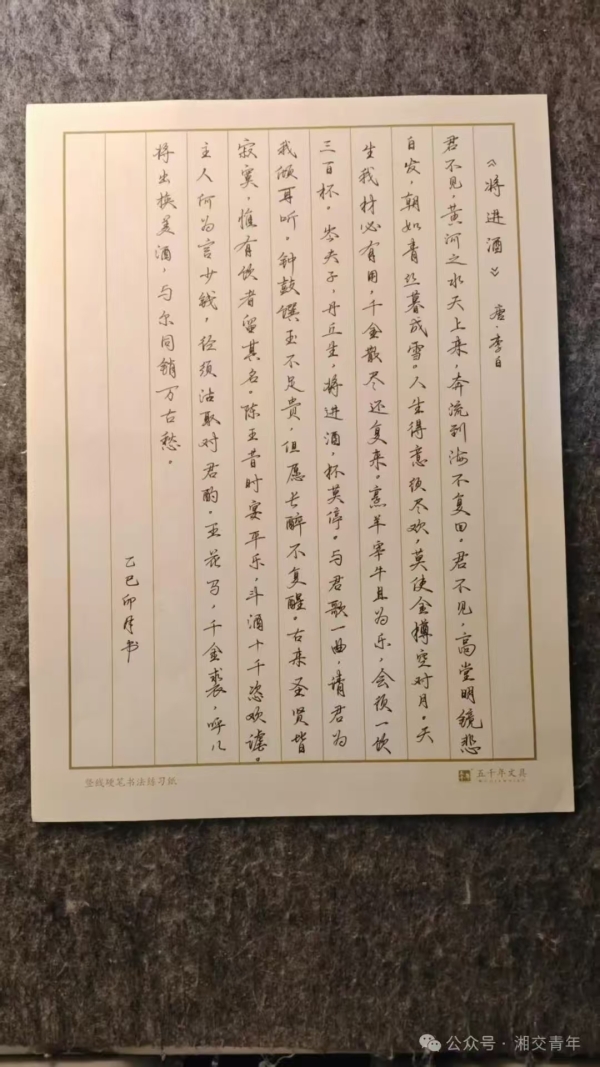 《将进酒》 唐·李白
君不见,黄河之水天上来,奔流到海不复回。君不见,高堂明镜悲
白发,朝如青丝暮成雪。人生得意须尽欢,莫使金樽空对月。天
生我材必有用,千金散尽还复来。烹羊宰牛且为乐,会须一饮
三百杯。岑夫子,丹丘生,将进酒,杯莫停。与君歌一曲,请君为
我倾耳听。钟鼓馔玉不足贵,但愿长醉不复醒。古来圣贤皆
寂寞,惟有饮者留其名。陈王昔时宴平乐,斗酒十千恣欢谑。
主人何为言少钱,径须沽取对君酌。五花马,千金裘,呼儿
将出换美酒,与尔同销万古愁。
乙巳卯月书
竖线硬笔书法练习纸
五十年文具
公众号·湘交青年